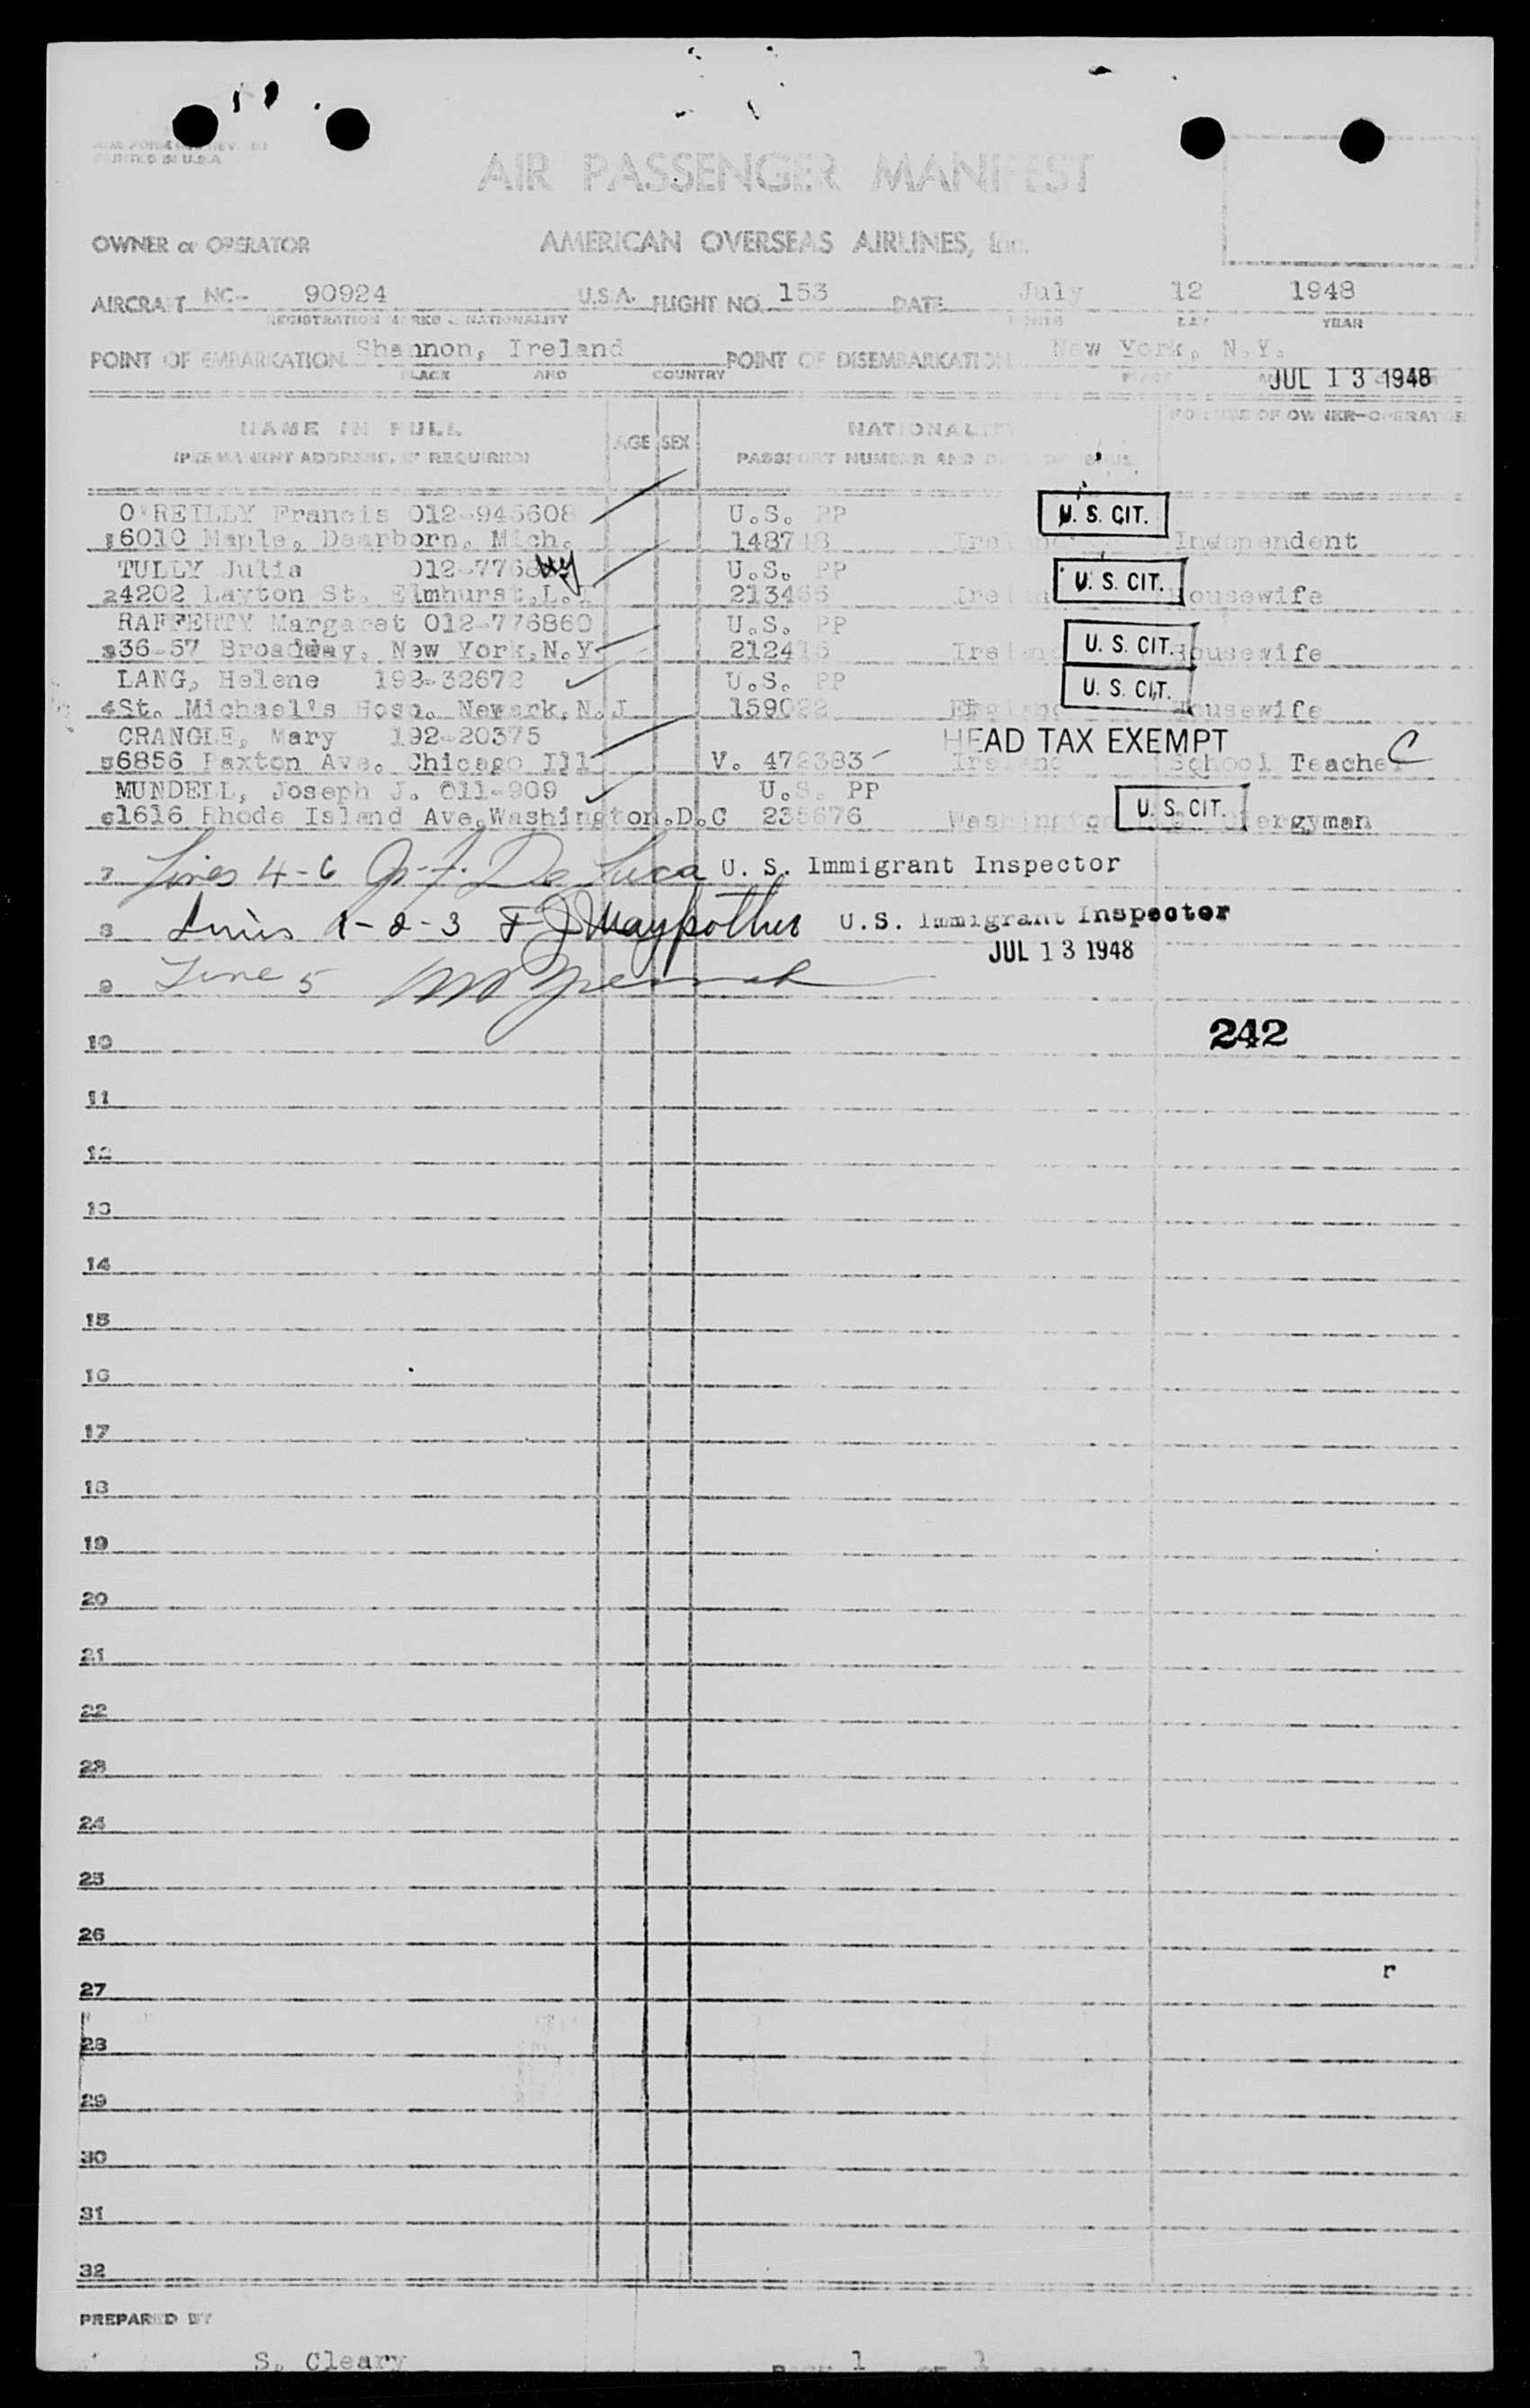 PRINTED IN U.S.A.
AIR PASSENGER MANIFEST
OWNER or OPERATOR AMERICAN OVERSEAS AIRLINES, Inc.
AIRCRAFT NC- 90924 U.S.A. FLIGHT NO. 153 DATE July 12 1948
REGISTRATION MARKS & NATIONALITY MONTH DAY YEAR
POINT OF EMBARKATION Shannon, Ireland POINT OF DISEMBARKATION New York, N.Y.
PLACE AND COUNTRY PLACE JUL 13 1948
NAME IN FULL AGE SEX NATIONALITY FOR USE OF OWNER-OPERATOR
(PERMANENT ADDRESS, IF REQUIRED) PASSPORT NUMBER AND
O'REILLY Francis 012-945608 U.S. PP U. S. CIT.
1 6010 Maple, Dearborn, Mich. 148718 Ireland Independent
TULLY Julia 012-7768 U.S. PP U. S. CIT.
2 4202 Layton St. Elmhurst, L.I 213466 Ireland Housewife
RAFFERTY Margaret 012-776860 U.S. PP U. S. CIT.
3 36-57 Broadway, New York, N.Y. 212415 Ireland Housewife
LANG, Helene 192-32672 U.S. PP U. S. CIT.
4 St. Michael's Hosp. Newark, N.J 159022 England Housewife
CRANGLE, Mary 192-20375 HEAD TAX EXEMPT
5 6856 Paxton Ave. Chicago Ill V. 472383 Ireland School Teacher C
MUNDELL, Joseph J. 011-909 U.S. PP U. S. CIT.
6 1616 Rhode Island Ave, Washington.D.C 235676 Washington Clergyman
7 Lines 4-6 De Luca U. S. Immigrant Inspector
8 Lines 1-2-3 U.S. Immigrant Inspector
JUL 13 1948
9 Line 5
242
10
11
12
13
14
15
16
17
18
19
20
21
22
23
24
25
26
r
27
28
29
30
31
32
PREPARED BY
S. Cleary PAGE 1 OF 1